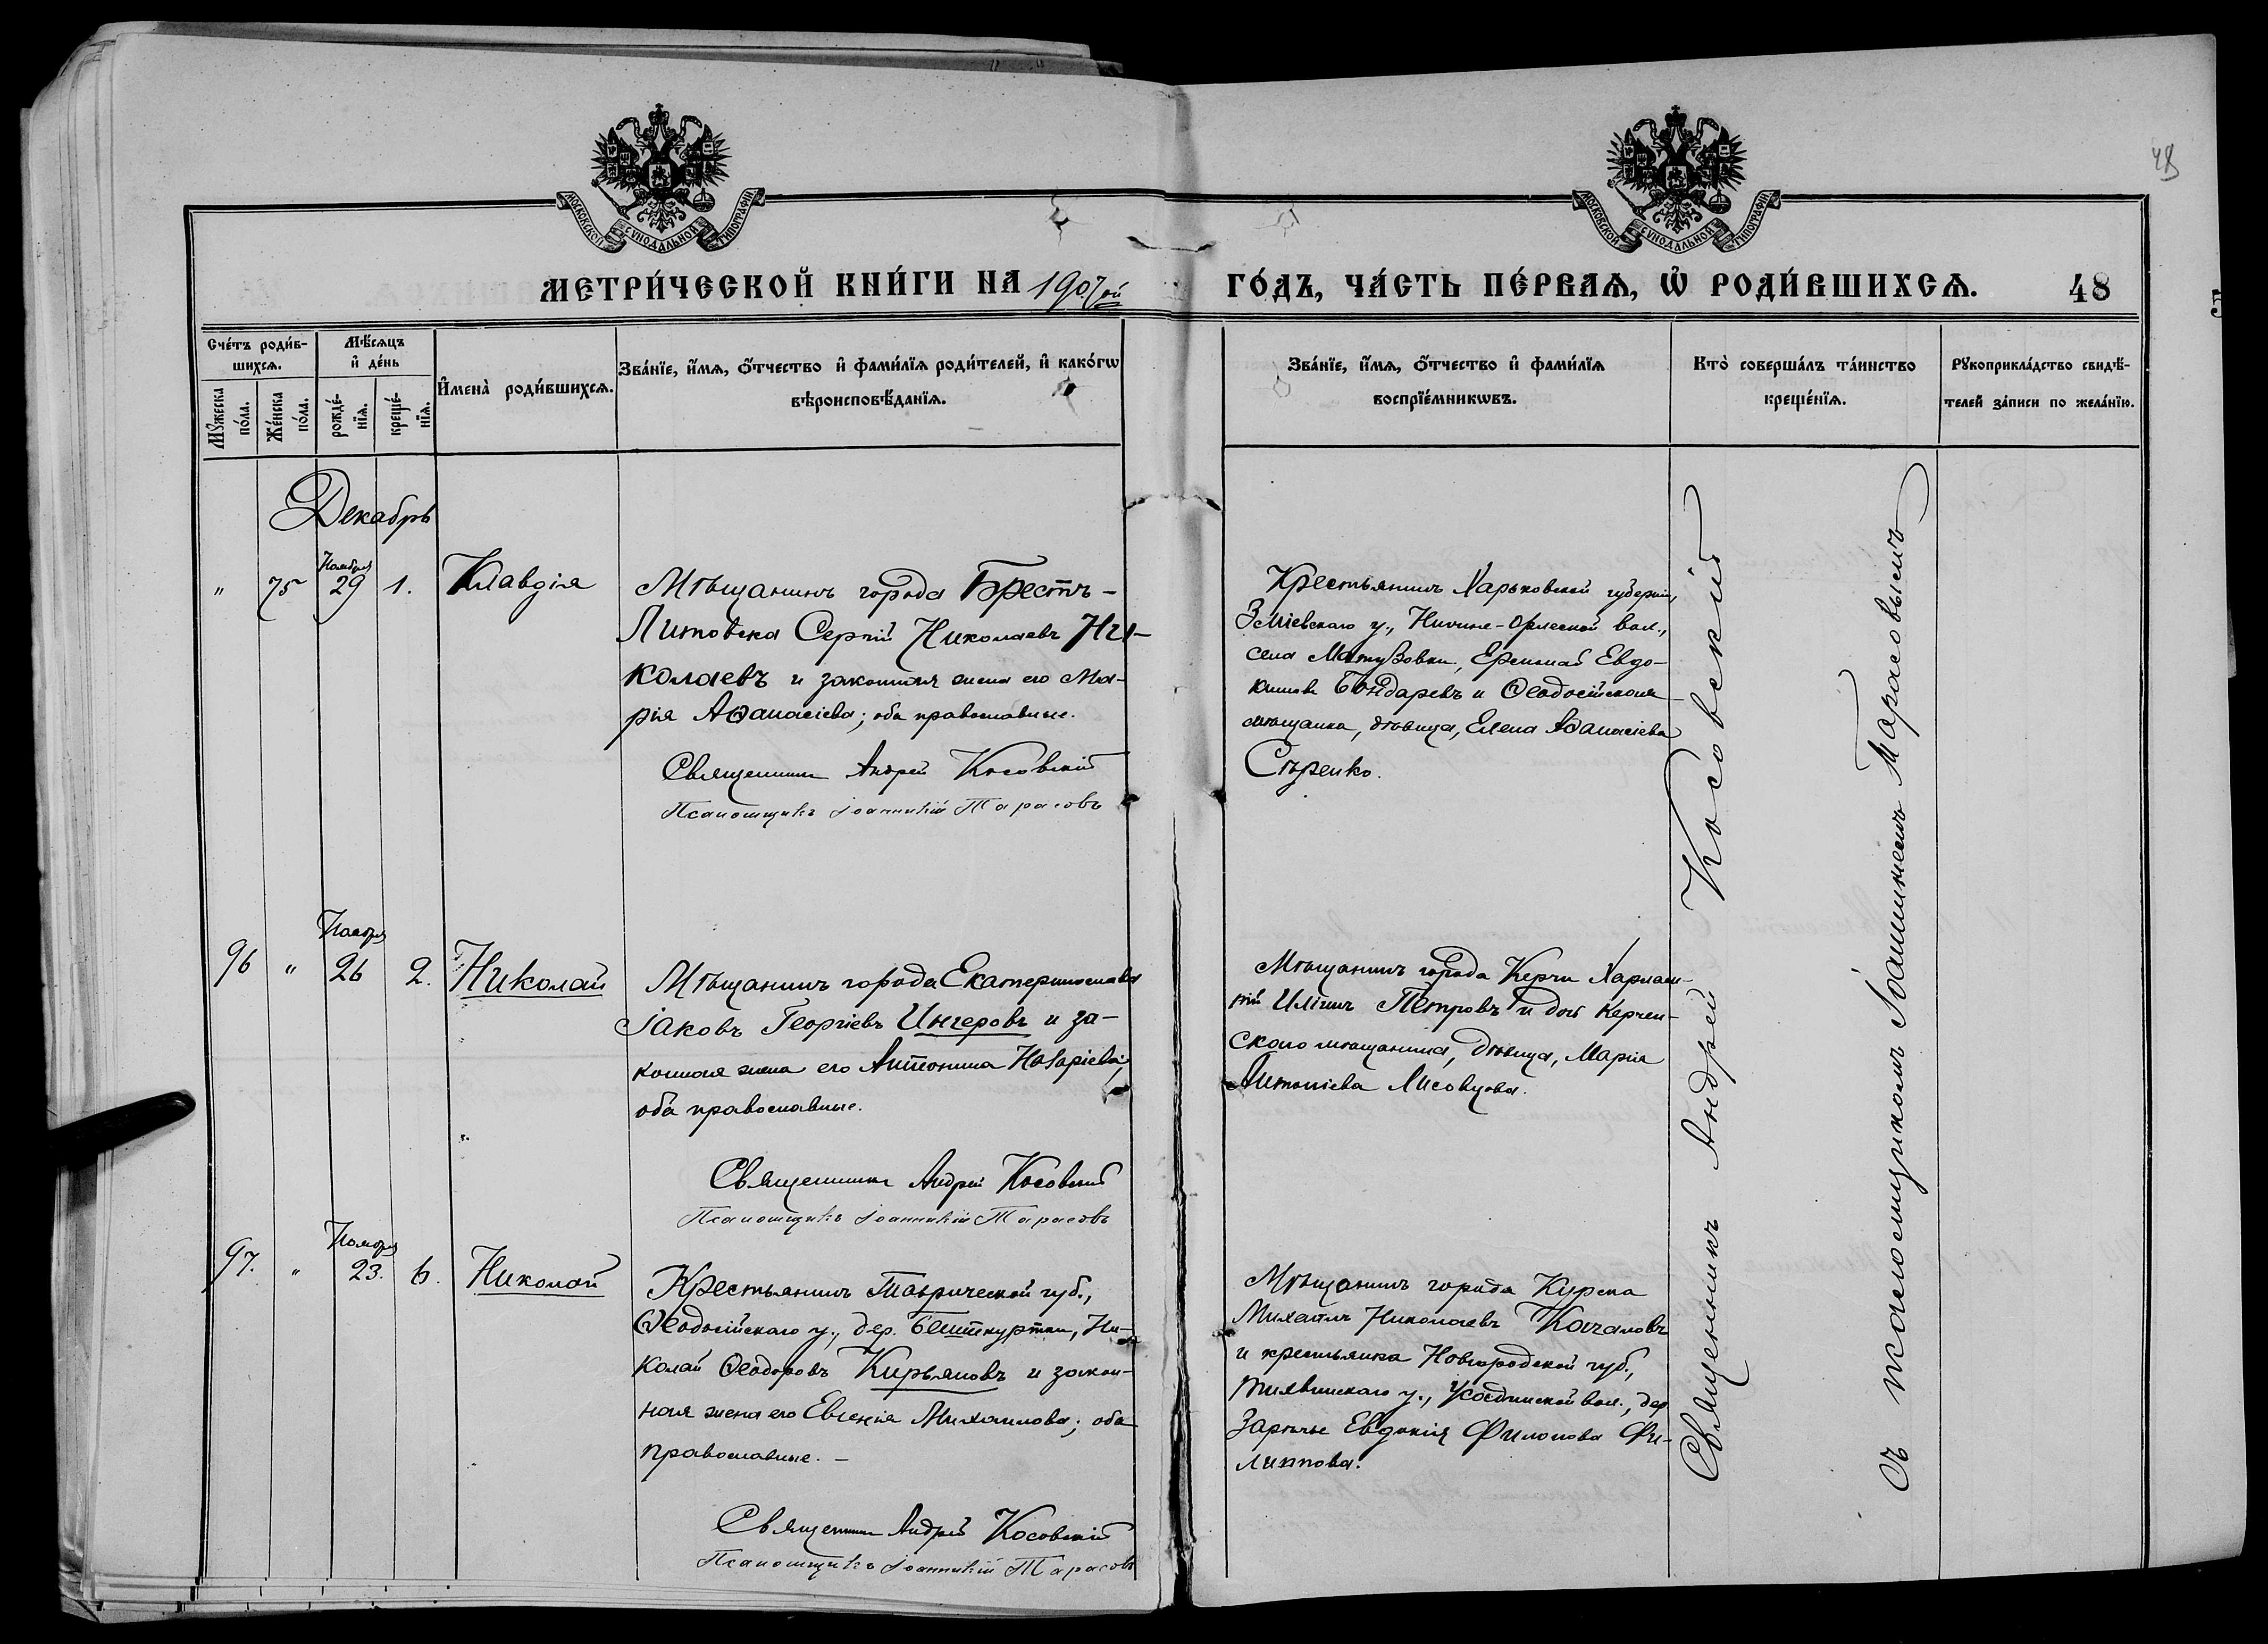 МОСКОВСКОЙ СѴНОДАЛЬНОЙ ТИПОГРАФІИ
МОСКОВСКОЙ СѴНОДАЛЬНОЙ ТИПОГРАФІИ
48
МЕТРИ́ЧЕСКОЙ КНИ́ГИ НА 1907ой ГО́ДЪ, ЧА́СТЬ ПЕ́РВАѦ, Ѡ҆ РОДИ́ВШИХСѦ. 48
Сче́тъ роди́в-
шихсѧ.
Мѣ́сѧцъ
и҆ де́нь
Мꙋ́жеска
по́ла.
Же́нска
по́ла.
рожде́-
нїѧ.
креще́-
нїѧ.
И҆мена̀ роди́вшихсѧ.
Зва́нїе, и҆́мѧ, ѻ҆́тчество и҆ фами́лїѧ роди́телей, и҆ како́гѡ
вѣроисповѣ́данїѧ.
Зва́нїе, и҆́мѧ, ѻ҆́тчество и҆ фами́лїѧ
воспрїе́мникѡвъ.
Кто̀ соверша́лъ та́инство
креще́нїѧ.
Рꙋкоприкла́дство свидѣ́-
телей за́писи по жела́нїю.
Декабрь
Ноября
" 75 29 1. Клавдія
Мѣщанинъ города Брестъ-
Литовска Сергій Николаевъ Ни-
колаевъ и законная жена его Ма-
рія Аѳанасіева; оба православные.
Священникъ Андрей Косовскій
Псаломщикъ Іоанникій Тарасовъ
Крестьянинъ Харьковской губерніи,
Зміевскаго у., Нижне-Орлеской вол.,
села Матузовки, Ермолай Евдо-
кимовъ Бондаревъ и Ѳеодосійская
мѣщанка, дѣвица, Елена Аѳанасіева
Сѣренко.
Ноября
96 " 26 2. Николай
Мѣщанинъ города Екатеринослава
Іаковъ Георгіевъ Ингеровъ и за-
конная жена его Антонина Назаріева;
оба православные.
Священникъ Андрей Косовскій
Псаломщикъ Іоанникій Тарасовъ
Мѣщанинъ города Керчи Харлам-
пій Иліинъ Петровъ и дочь Керчен-
скаго мѣщанина, дѣвица, Марія
Антоніева Лисовцова.
Ноября
97. " 23. 6. Николай
Крестьянинъ Таврической губ.,
Ѳеодосійскаго у., дер. Бешткуртки, Ни-
колай Ѳеодоровъ Кирьяновъ и закон-
ная жена его Евгенія Михаилова; оба
православные. —
Священникъ Андрей Косовскій
Псаломщикъ Іоанникій Тарасовъ
Мѣщанинъ города Курска
Михаилъ Николаевъ Качаловъ
и крестьянка Новгородской губ.,
Тихвинскаго у., Усадинской вол., дер.
Зарѣчье Евдокія Филонова Фи-
липпова.
Священникъ Андрей Косовскій
съ псаломщикомъ Іоанникіемъ Тарасовымъ